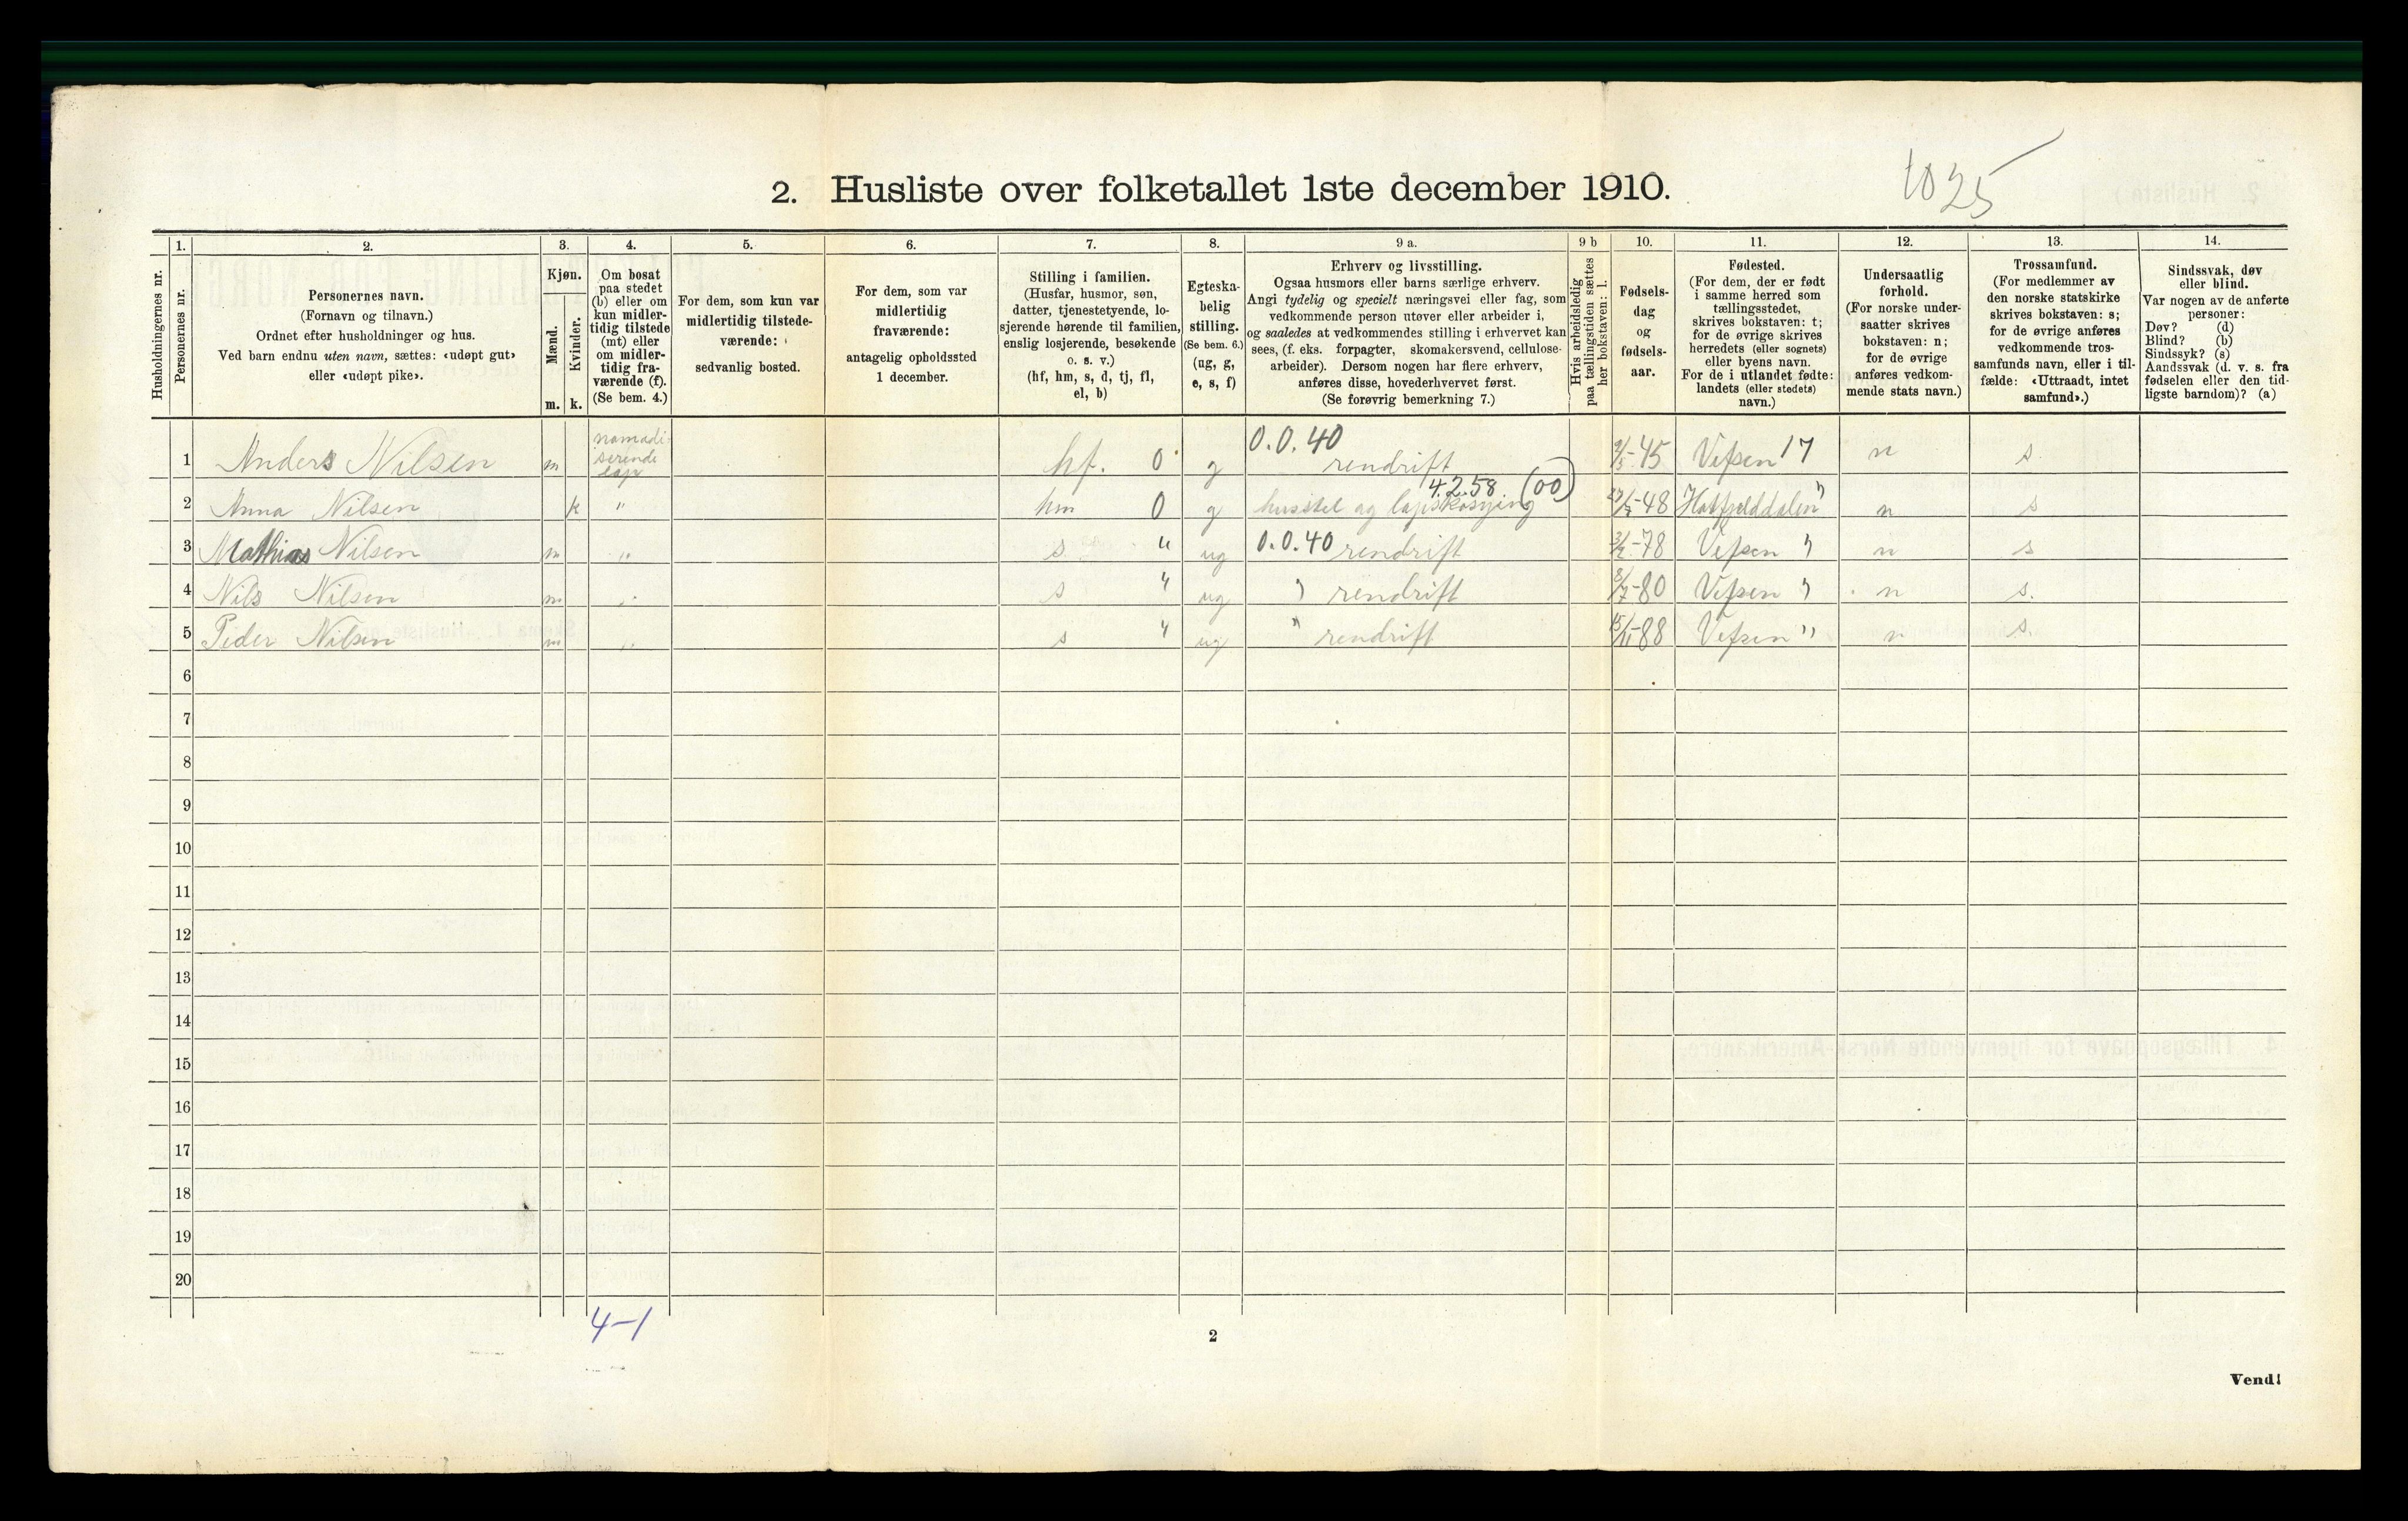 2. Husliste over folketallet 1ste december 1910.
1025
Husholdningernes nr.
1.
Personernes nr.
2.
Personernes navn.
(Fornavn og tilnavn.)
Ordnet efter husholdninger og hus.
Ved barn endnu uten navn, sættes: «udøpt gut»
eller «udøpt pike».
3.
Kjøn.
Mænd.
Kvinder.
m. k.
4.
Om bosat
paa stedet
(b) eller om
kun midler-
tidig tilstede
(mt) eller
om midler-
tidig fra-
værende (f).
(Se bem. 4.)
5.
For dem, som kun var
midlertidig tilstede-
værende:
sedvanlig bosted.
6.
For dem, som var
midlertidig
fraværende:
antagelig opholdssted
1 december.
7.
Stilling i familien.
(Husfar, husmor, søn,
datter, tjenestetyende, lo-
sjerende hørende til familien,
enslig losjerende, besøkende
o. s. v.)
(hf, hm, s, d, tj, fl,
el, b)
8.
Egteska-
belig
stilling.
(Se bem. 6.)
(ug, g,
e, s, f)
9 a.
Erhverv og livsstilling.
Ogsaa husmors eller barns særlige erhverv.
Angi tydelig og specielt næringsvei eller fag, som
vedkommende person utøver eller arbeider i,
og saaledes at vedkommendes stilling i erhvervet kan
sees, (f. eks. forpagter, skomakersvend, cellulose-
arbeider). Dersom nogen har flere erhverv,
anføres disse, hovederhvervet først.
(Se forøvrig bemerkning 7.)
9 b
Hvis arbeidsledig
paa tællingstiden sættes
her bokstaven: l.
10.
Fødsels-
dag
og
fødsels-
aar.
11.
Fødested.
(For dem, der er født
i samme herred som
tællingsstedet,
skrives bokstaven: t;
for de øvrige skrives
herredets (eller sognets)
eller byens navn.
For de i utlandet fødte:
landets (eller stedets)
navn.)
12.
Undersaatlig
forhold.
(For norske under-
saatter skrives
bokstaven: n;
for de øvrige
anføres vedkom-
mende stats navn.)
13.
Trossamfund.
(For medlemmer av
den norske statskirke
skrives bokstaven: s;
for de øvrige anføres
vedkommende tros-
samfunds navn, eller i til-
fælde: «Uttraadt, intet
samfund».)
14.
Sindssvak, døv
eller blind.
Var nogen av de anførte
personer:
Døv? (d)
Blind? (b)
Sindssyk? (s)
Aandssvak (d. v. s. fra
fødselen eller den tid-
ligste barndom)? (a)
1 Anders Nilsen m nomadiserende lap hf. 0 g 0.0.40 rendrift 45 Vefsen 17 n s.
2 Anna Nilsen k " hm 0 g husstel og lapskosying 4.2.58 (00) 48 Hatfjelddalen " n s
3 Mathias Nilsen m " s " ug 0.0.40 rendrift 3/2-78 Vefsen " n s
4 Nils Nilsen m " s " ug " rendrift 8/7-80 Vefsen " n s.
5 Peder Nilsen m " s " ug " rendrift 15/11-88 Vefsen " n s.
6
7
8
9
10
11
12
13
14
15
16
17
18
19
20
4-1
2
Vend!